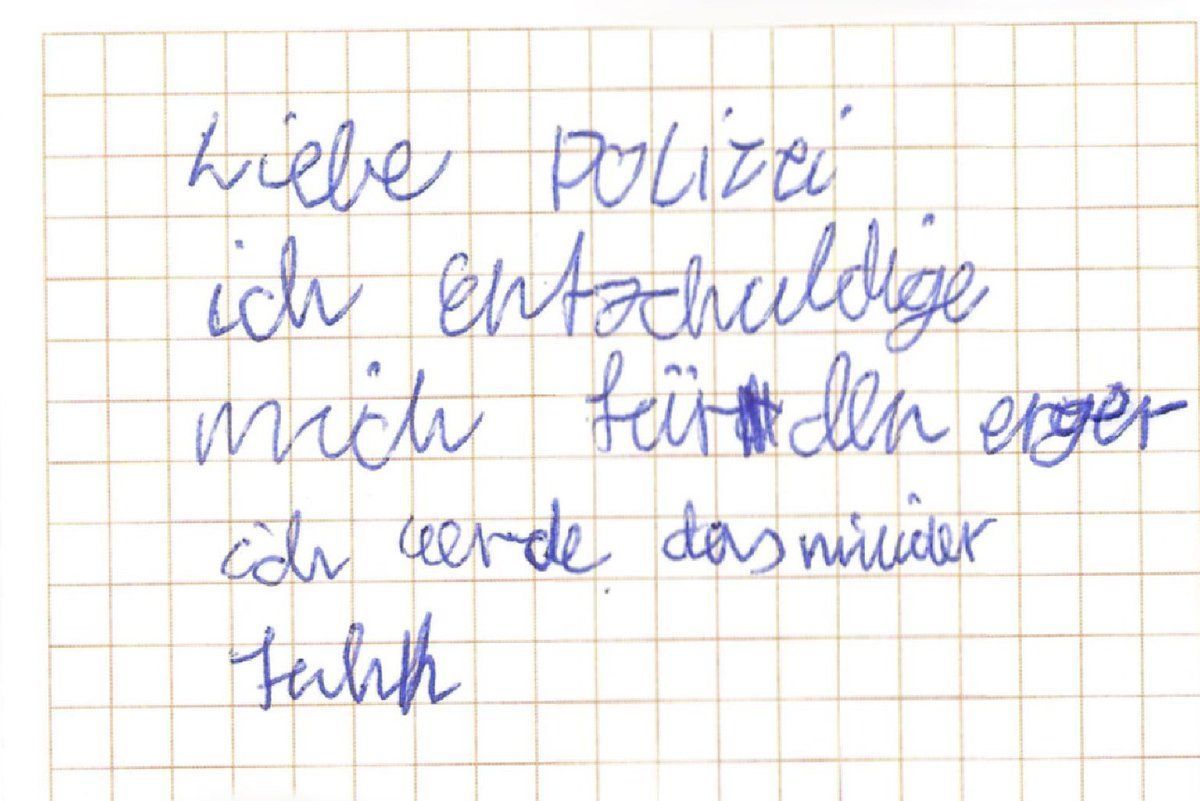 Liebe Polizei
ich entschuldige
mich für den erger
ich werde das niwider
tuhn